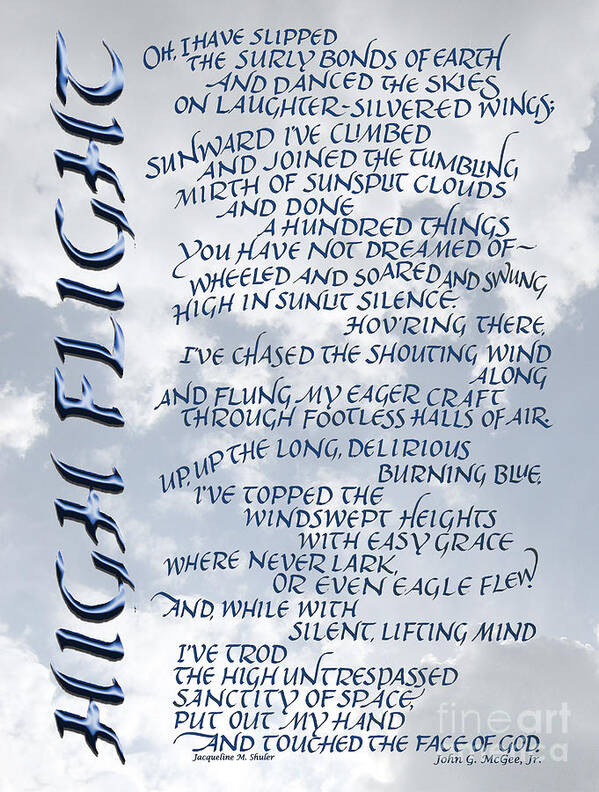 HIGH FLIGHT
OH, I HAVE SLIPPED
THE SURLY BONDS OF EARTH
AND DANCED THE SKIES
ON LAUGHTER-SILVERED WINGS;
SUNWARD I'VE CLIMBED
AND JOINED THE TUMBLING
MIRTH OF SUNSPLIT CLOUDS
AND DONE
A HUNDRED THINGS
YOU HAVE NOT DREAMED OF~
WHEELED AND SOARED AND SWUNG
HIGH IN SUNLIT SILENCE.
HOV'RING THERE,
I'VE CHASED THE SHOUTING WIND
ALONG
AND FLUNG MY EAGER CRAFT
THROUGH FOOTLESS HALLS OF AIR.
UP, UP THE LONG, DELIRIOUS
BURNING BLUE,
I'VE TOPPED THE
WINDSWEPT HEIGHTS
WITH EASY GRACE
WHERE NEVER LARK,
OR EVEN EAGLE FLEW?
AND, WHILE WITH
SILENT, LIFTING MIND
I'VE TROD
THE HIGH UNTRESPASSED
SANCTITY OF SPACE,
PUT OUT MY HAND
AND TOUCHED THE FACE OF GOD.
Jacqueline M. Shuler
John G. McGee, Jr.
fineart
america